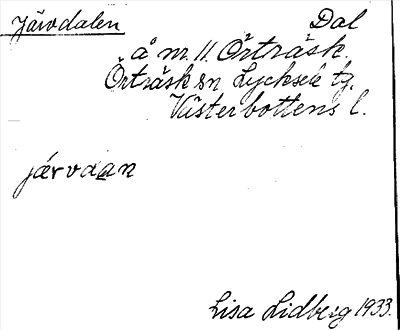 Järvdalen Dal
å nr. 11. Örträsk.
Örträsk sn Lycksele tg.
Västerbottens l.
järvdan
Lisa Lidberg 1933.